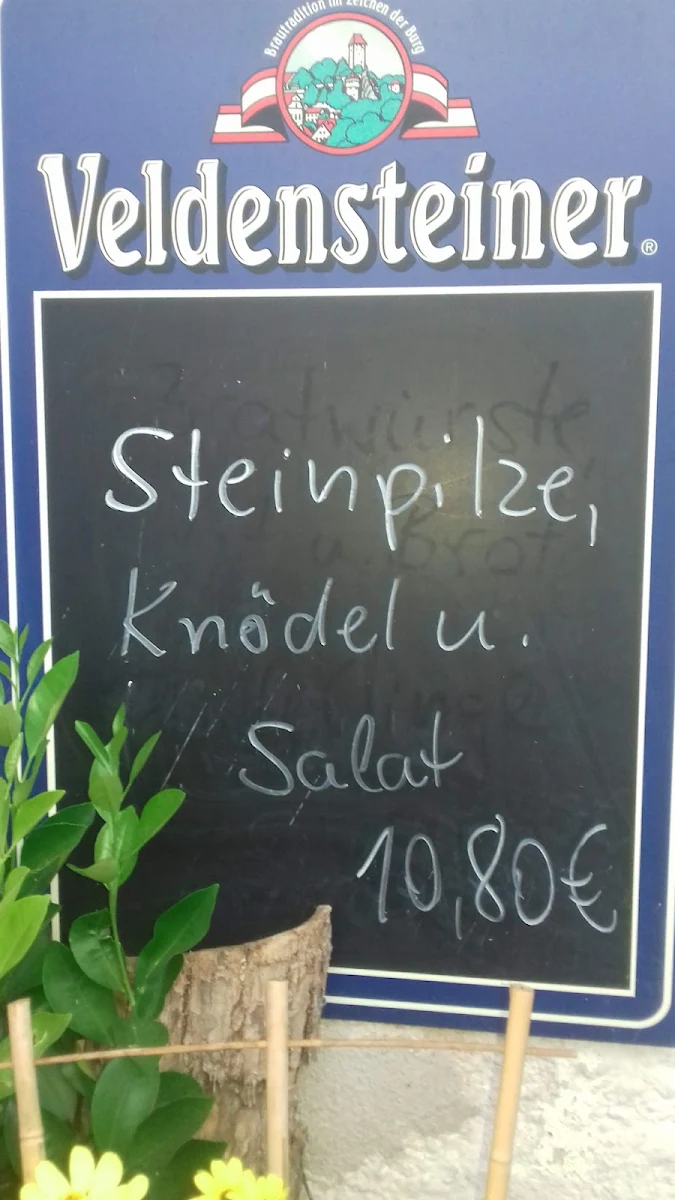 Brautradition im Zeichen der Burg
Veldensteiner®
Bratwürste
Steinpilze,
u. Brot
Knödel u.
Salat
10,80€